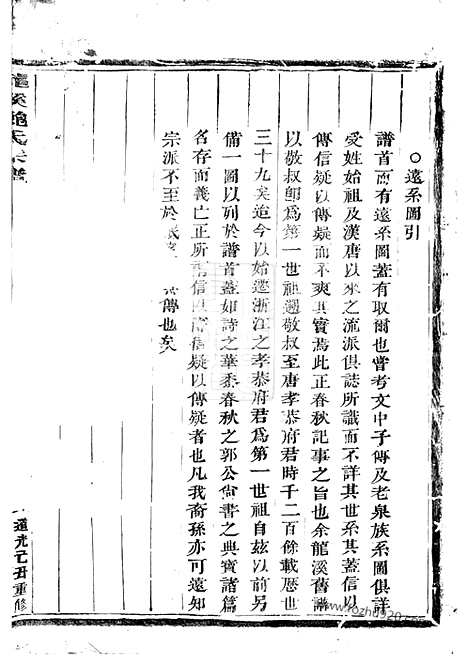 ○遠系圖引
譜首而有遠系圖蓋有取爾也嘗考文中子傳及老泉族系圖俱詳
受姓始祖及漢唐以來之流派俱誌所識而不詳其世系其蓋信以
傳信疑以傳疑而不爽其實焉此正春秋記事之旨也余龍溪舊譜
以敬叔郎為第一世祖遡敬叔至唐孝恭府君時千二百餘載歷世
三十九矣迨今以始遷浙江之孝恭府君為第一世祖自茲以前另
備一圖以列於譜首蓋如詩之華黍春秋之郭公尚書之典寶諸篇
名存而義亡正所謂信以傳信疑以傳疑者也凡我裔孫亦可遠知
宗派不至於 傳也矣
龍溪鮑氏宗譜
一 道光己丑重修